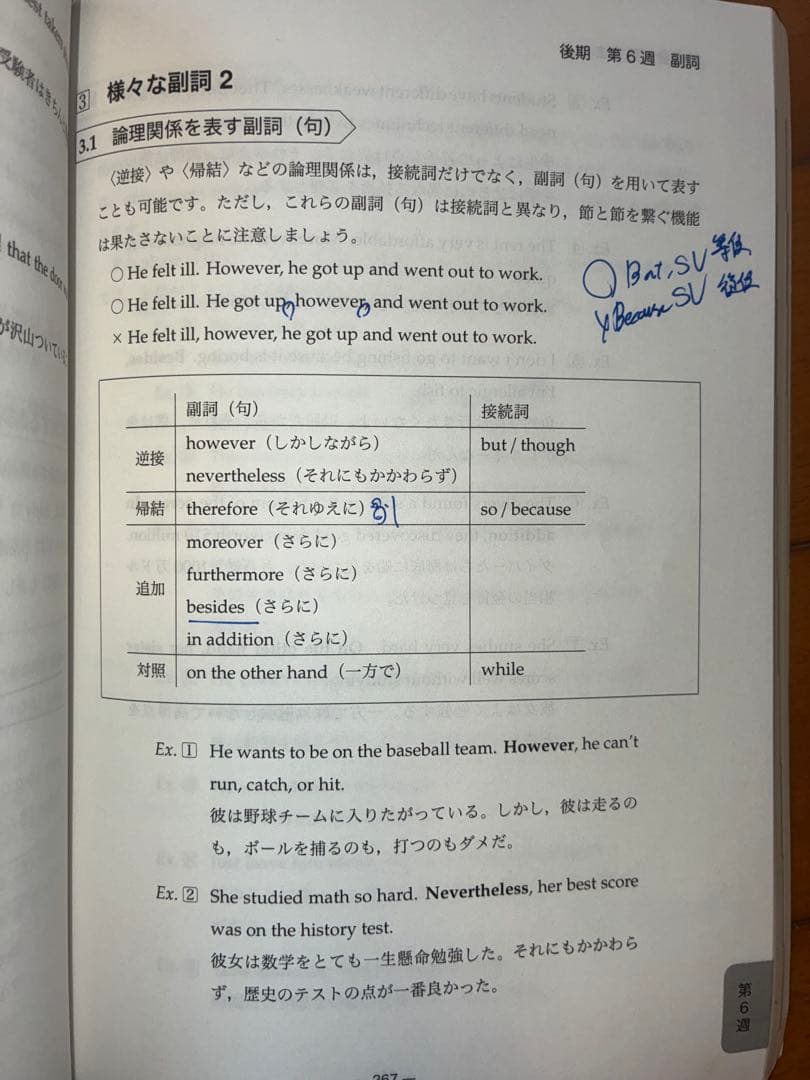 est taken
受験者はきちん
that the door
が沢山ついている
後期 第6週 副詞
3 様々な副詞 2
3.1 論理関係を表す副詞（句）
〈逆接〉や〈帰結〉などの論理関係は，接続詞だけでなく，副詞（句）を用いて表す
ことも可能です。ただし，これらの副詞（句）は接続詞と異なり，節と節を繋ぐ機能
は果たさないことに注意しましょう。
○ He felt ill. However, he got up and went out to work.
○ He felt ill. He got up, however, and went out to work.
× He felt ill, however, he got up and went out to work.
○ But, SV 等位
× Because SV 従位
副詞（句） 接続詞
逆接 however（しかしながら） but / though
nevertheless（それにもかかわらず）
帰結 therefore（それゆえに）副 so / because
追加 moreover（さらに）
furthermore（さらに）
besides（さらに）
in addition（さらに）
対照 on the other hand（一方で） while
Ex. 1 He wants to be on the baseball team. However, he can't
run, catch, or hit.
彼は野球チームに入りたがっている。しかし，彼は走るの
も，ボールを捕るのも，打つのもダメだ。
Ex. 2 She studied math so hard. Nevertheless, her best score
was on the history test.
彼女は数学をとても一生懸命勉強した。それにもかかわら
ず，歴史のテストの点が一番良かった。
第6週
267